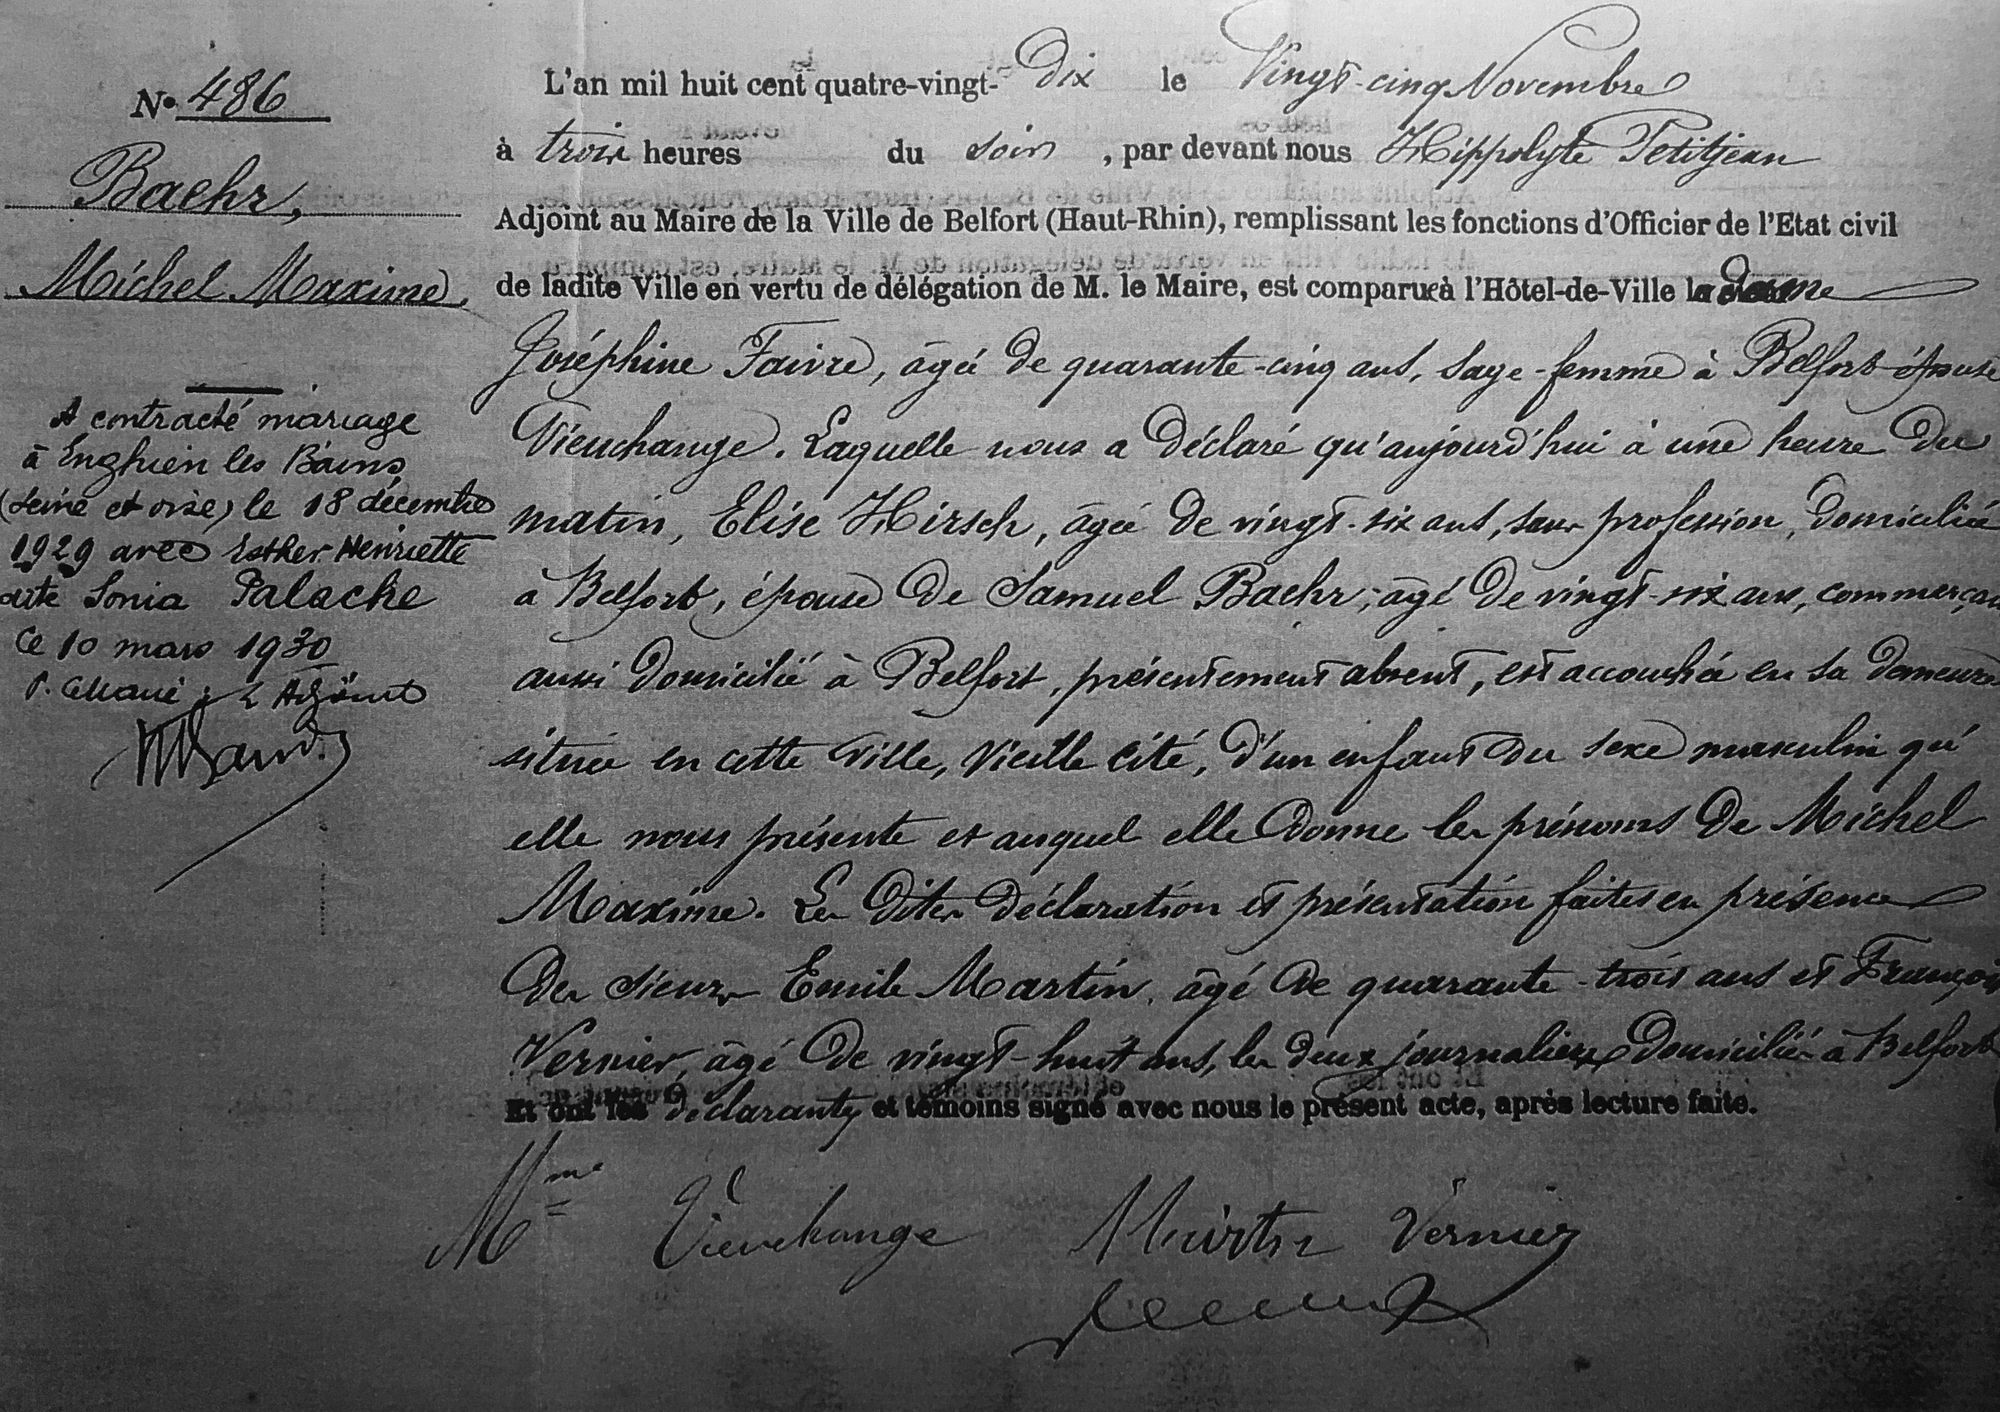 N° 486
Baehr,
Michel Maxime,
A contracté mariage
à Enghien les Bains
(Seine et oise) le 18 décembre
1929 avec Esther Henriette
dite Sonia Palache
Ce 10 mars 1930
P. le Maire : L'Adjoint
L'an mil huit cent quatre-vingt-dix le Vingt-cinq Novembre
à trois heures du soir, par devant nous Hippolyte Petitjean
Adjoint au Maire de la Ville de Belfort (Haut-Rhin), remplissant les fonctions d'Officier de l'Etat civil
de ladite Ville en vertu de délégation de M. le Maire, est comparue à l'Hôtel-de-Ville la dame
Joséphine Faivre, âgée de quarante-cinq ans, sage-femme à Belfort épouse
Vieuchange. Laquelle nous a déclaré qu'aujourd'hui à une heure du
matin, Elise Hirsch, âgée de vingt-six ans, sans profession, domiciliée
à Belfort, épouse de Samuel Baehr, âgé de vingt-six ans, commerçant
aussi domicilié à Belfort, présentement absent, est accouchée en sa demeure
située en cette ville, vieille cité, d'un enfant du sexe masculin qu'
elle nous présente et auquel elle donne les prénoms de Michel
Maxime. Les dites déclaration et présentation faites en présence
des sieurs Emile Martin, âgé de quarante-trois ans et François
Vernier, âgé de vingt-huit ans, les deux journaliers domiciliés à Belfort
Et ont les déclarants et témoins signé avec nous le présent acte, après lecture faite.
Mme Vieuchange Martin Vernier